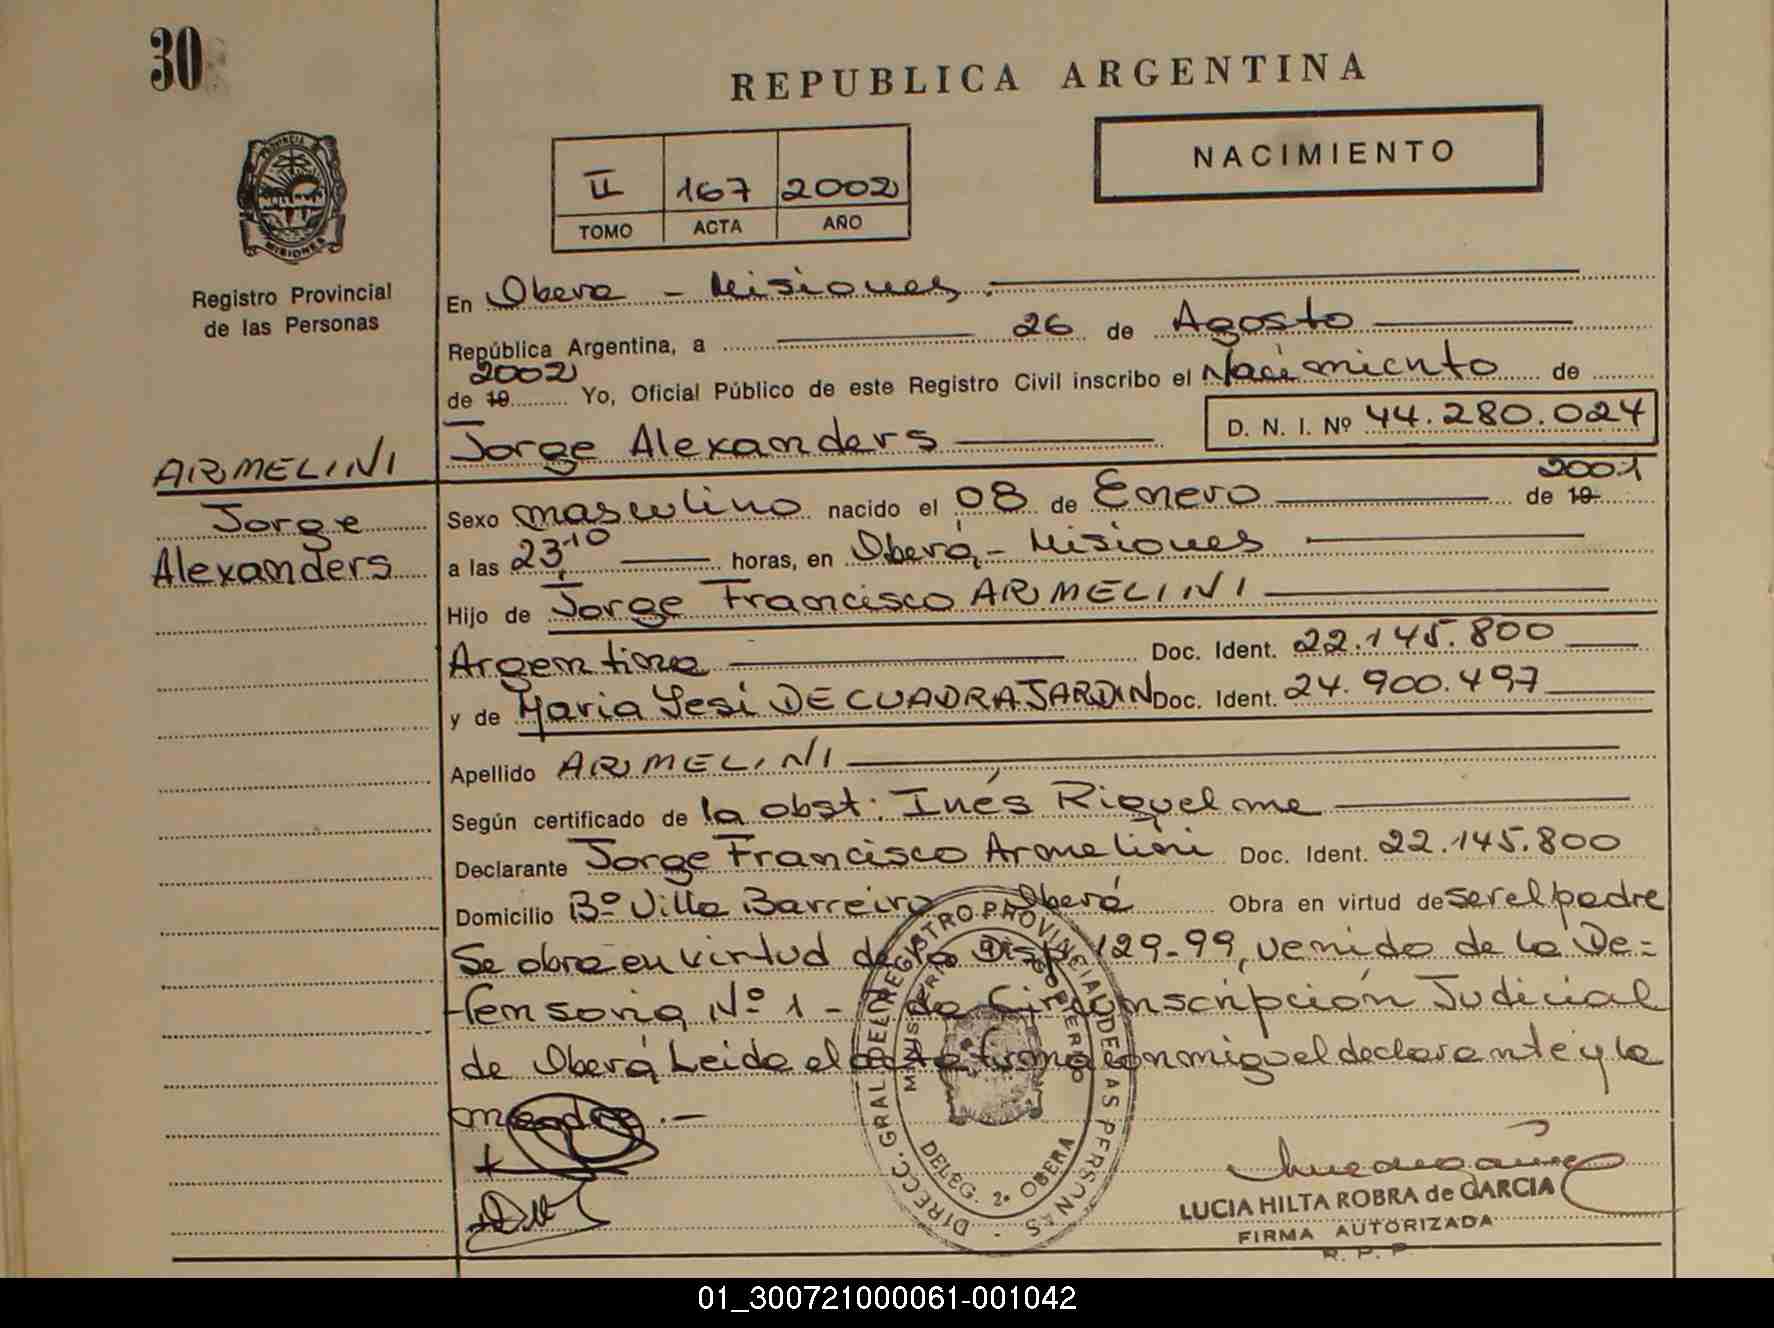 30
REPUBLICA ARGENTINA
NACIMIENTO
II 167 2002
TOMO ACTA AÑO
PROVINCIA DE
MISIONES
Registro Provincial
de las Personas
En Obera - Misiones.
República Argentina, a 26 de Agosto
2002
de 19 Yo, Oficial Público de este Registro Civil inscribo el Nacimiento de
Jorge Alexanders D. N. I. Nº 44.280.024
ARMELINI
Jorge
Alexanders
2001
Sexo masculino nacido el 08 de Enero de 19
a las 23,10 horas, en Oberá - Misiones
Hijo de Jorge Francisco ARMELINI
Argentina Doc. Ident. 22.145.800
y de Maria Yesi DE CUADRA JARDIN Doc. Ident. 24.900.497
Apellido ARMELINI
Según certificado de la obst: Inés Riquelme
Declarante Jorge Francisco Armelini Doc. Ident. 22.145.800
Domicilio Bº Villa Barreiro Oberá Obra en virtud de ser el padre
Se obra en virtud de la Disp. 129-99, venido de la De=
fensoria Nº 1 - de Circunscripción Judicial
de Oberá Leida el acta firma conmigo el declarante y la
madre.-
DIRECC. GRAL DEL REGISTRO PROVINCIAL DE LAS PERSONAS
MINISTERIO GOBIERNO
DELEG. 2ª OBERA
LUCIA HILTA ROBRA de GARCIA
FIRMA AUTORIZADA
R. P. P
01_300721000061-001042